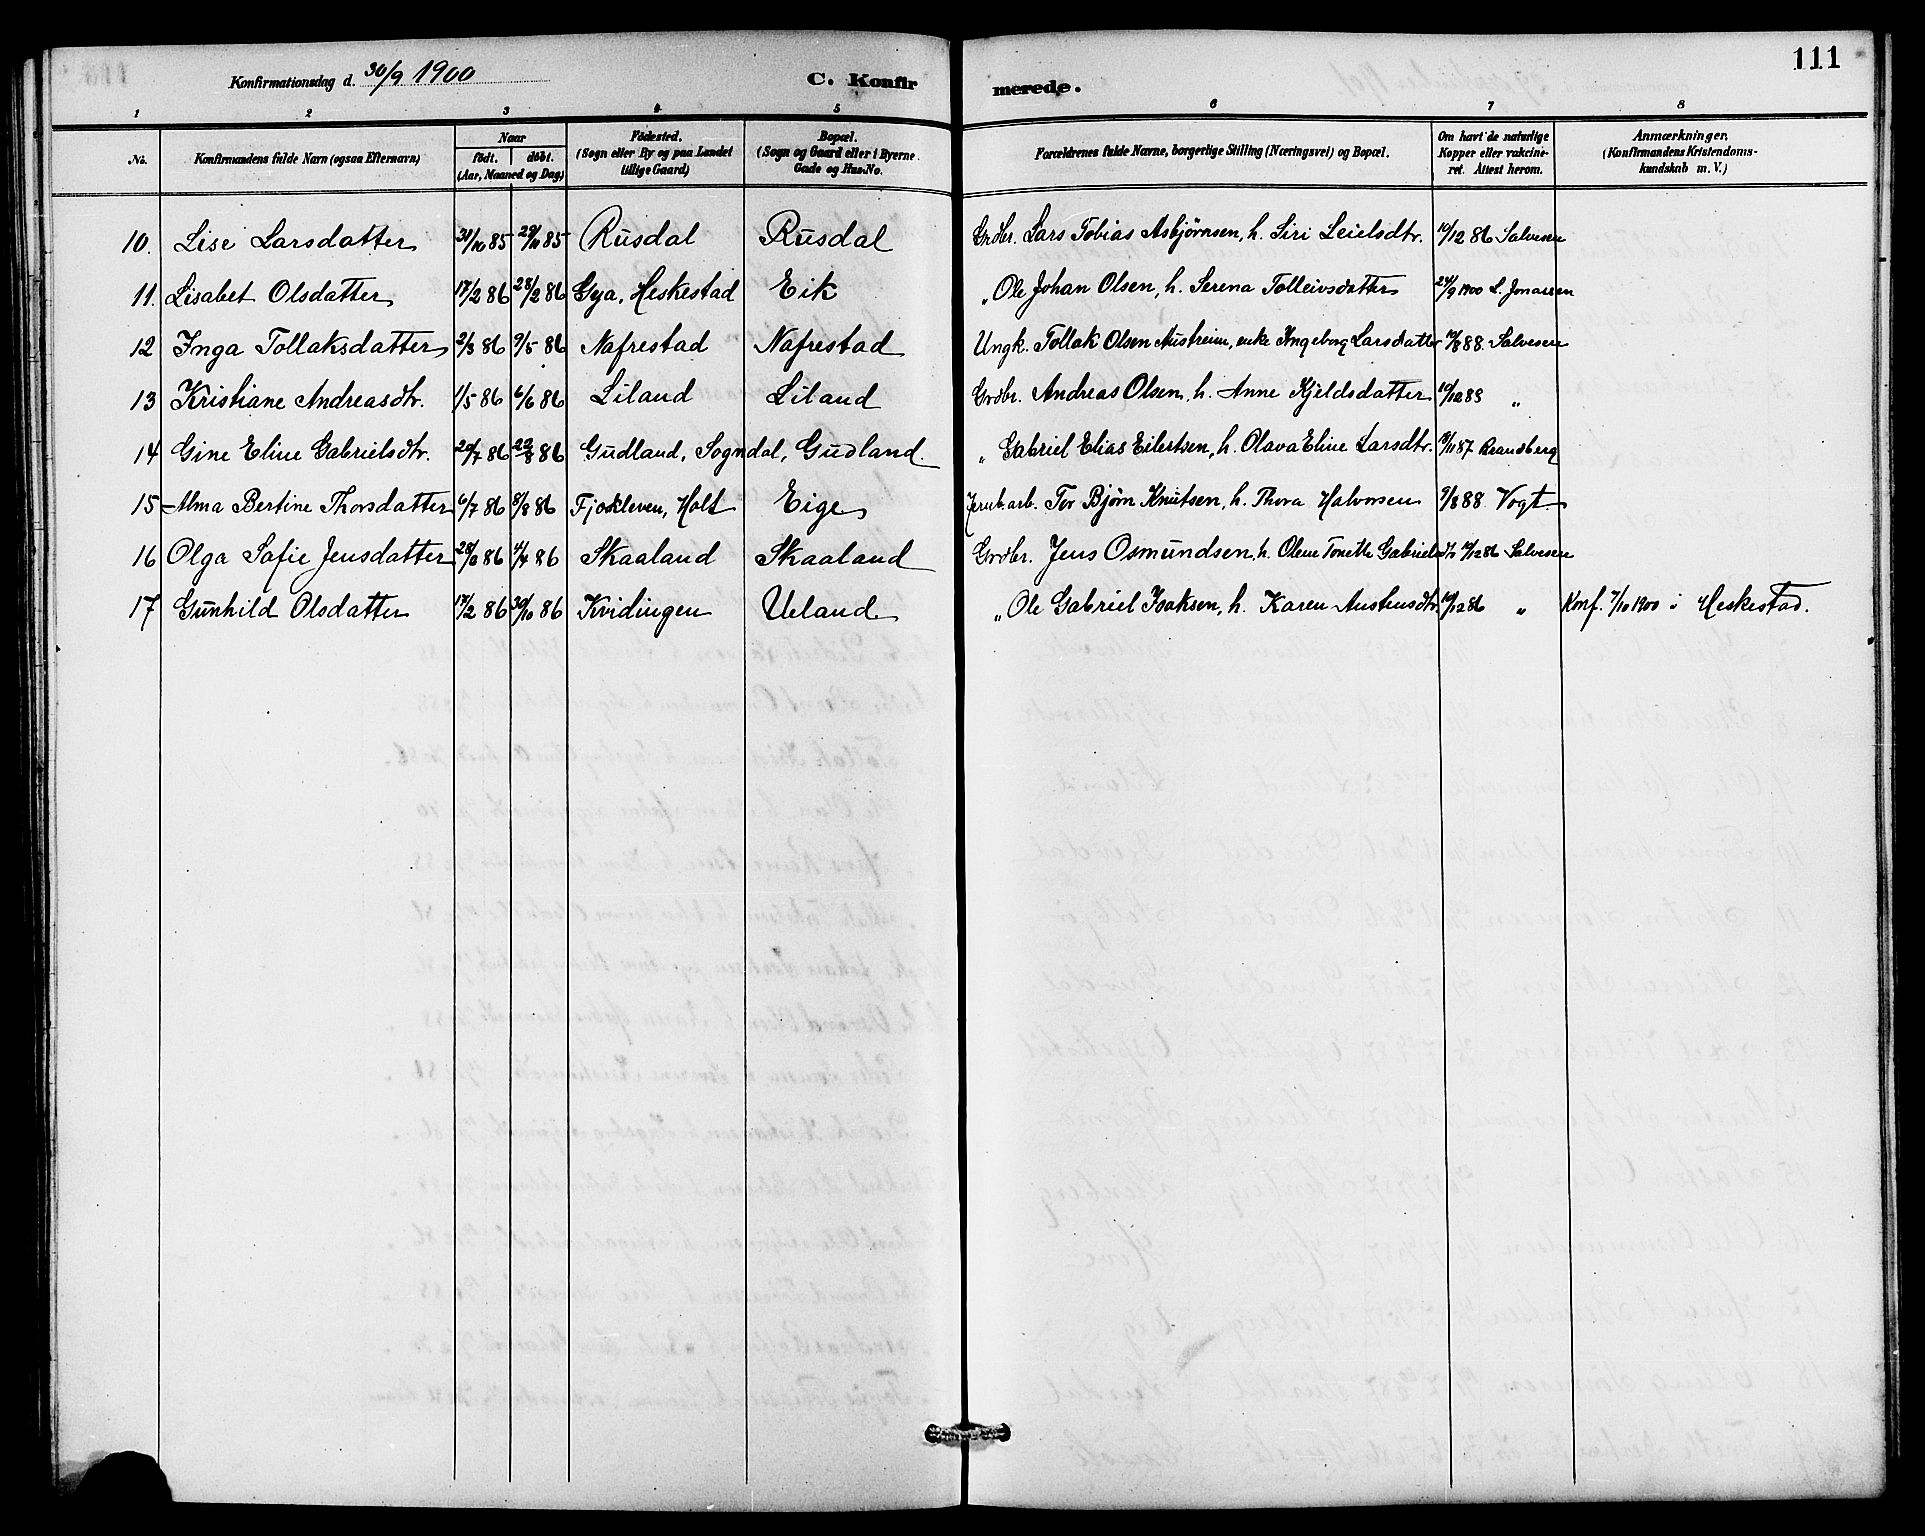 111
Konfirmationsdag d. 30/9 1900 C. Konfir merede.
1 2 3 4 5 6 7 8
No. Konfirmandens fulde Navn (ogsaa Efternavn) Naar födt. döbt. (Aar, Maaned og Dag) Födested. (Sogn eller By og paa Landet tillige Gaard) Bopæl. (Sogn og Gaard eller i Byerne Gade og Hus-No. Forældrenes fulde Navne, borgerlige Stilling (Næringsvei) og Bopæl. Om havt de naturlige Kopper eller vakcineret. Attest herom. Anmærkninger. (Konfirmandens Kristendomskundskab m. V.)
10. Lise Larsdatter 31/10 85 29/11 85 Rusdal Rusdal Grdbr. Lars Tobias Asbjørnsen, h. Siri Leielsdtr. 10/12 86 Salvesen
11. Lisabet Olsdatter 17/2 86 28/2 86 Gya, Heskestad Eik „ Ole Johan Olsen, h. Serena Tolleivsdatter 24/9 1900 L. Jonassen
12 Inga Tollaksdatter 2/3 86 9/5 86 Nafrestad Nafrestad Ungk. Tollak Olsen Austreim, enke Ingeborg Larsdatter 10/8 88. Salvesen
13 Kristiane Andreasdtr. 1/5 86 6/6 86 Liland Liland Grdbr. Andreas Olsen, h. Anne Kjeldsdatter 10/12 88 „
14 Gine Eline Gabrielsdtr. 20/7 86 22/8 86 Gudland, Sogndal, Gudland. „ Gabriel Elias Eilertsen, h. Olava Eline Larsdtr. 18/11 87 Brandberg
15 Alma Bertine Thorsdatter 6/7 86 8/8 86 Fjokleven, Holt Eige Jernb. arb. Tor Bjørn Knutsen, h. Thora Halvorsen 9/8 88 Vogt
16 Olga Sofie Jensdatter 86 4/4 86 Skaaland Skaaland Grdbr. Jens Osmundsen, h. Olene Tonette Gabrielsdtr 10/12 86 Salvesen
17 Gunhild Olsdatter 17/2 86 30/10 86 Kvidingen Ueland „ Ole Gabriel Isaksen, h. Karen 10/12 86 „ Konf. 7/10 1900 i Heskestad.